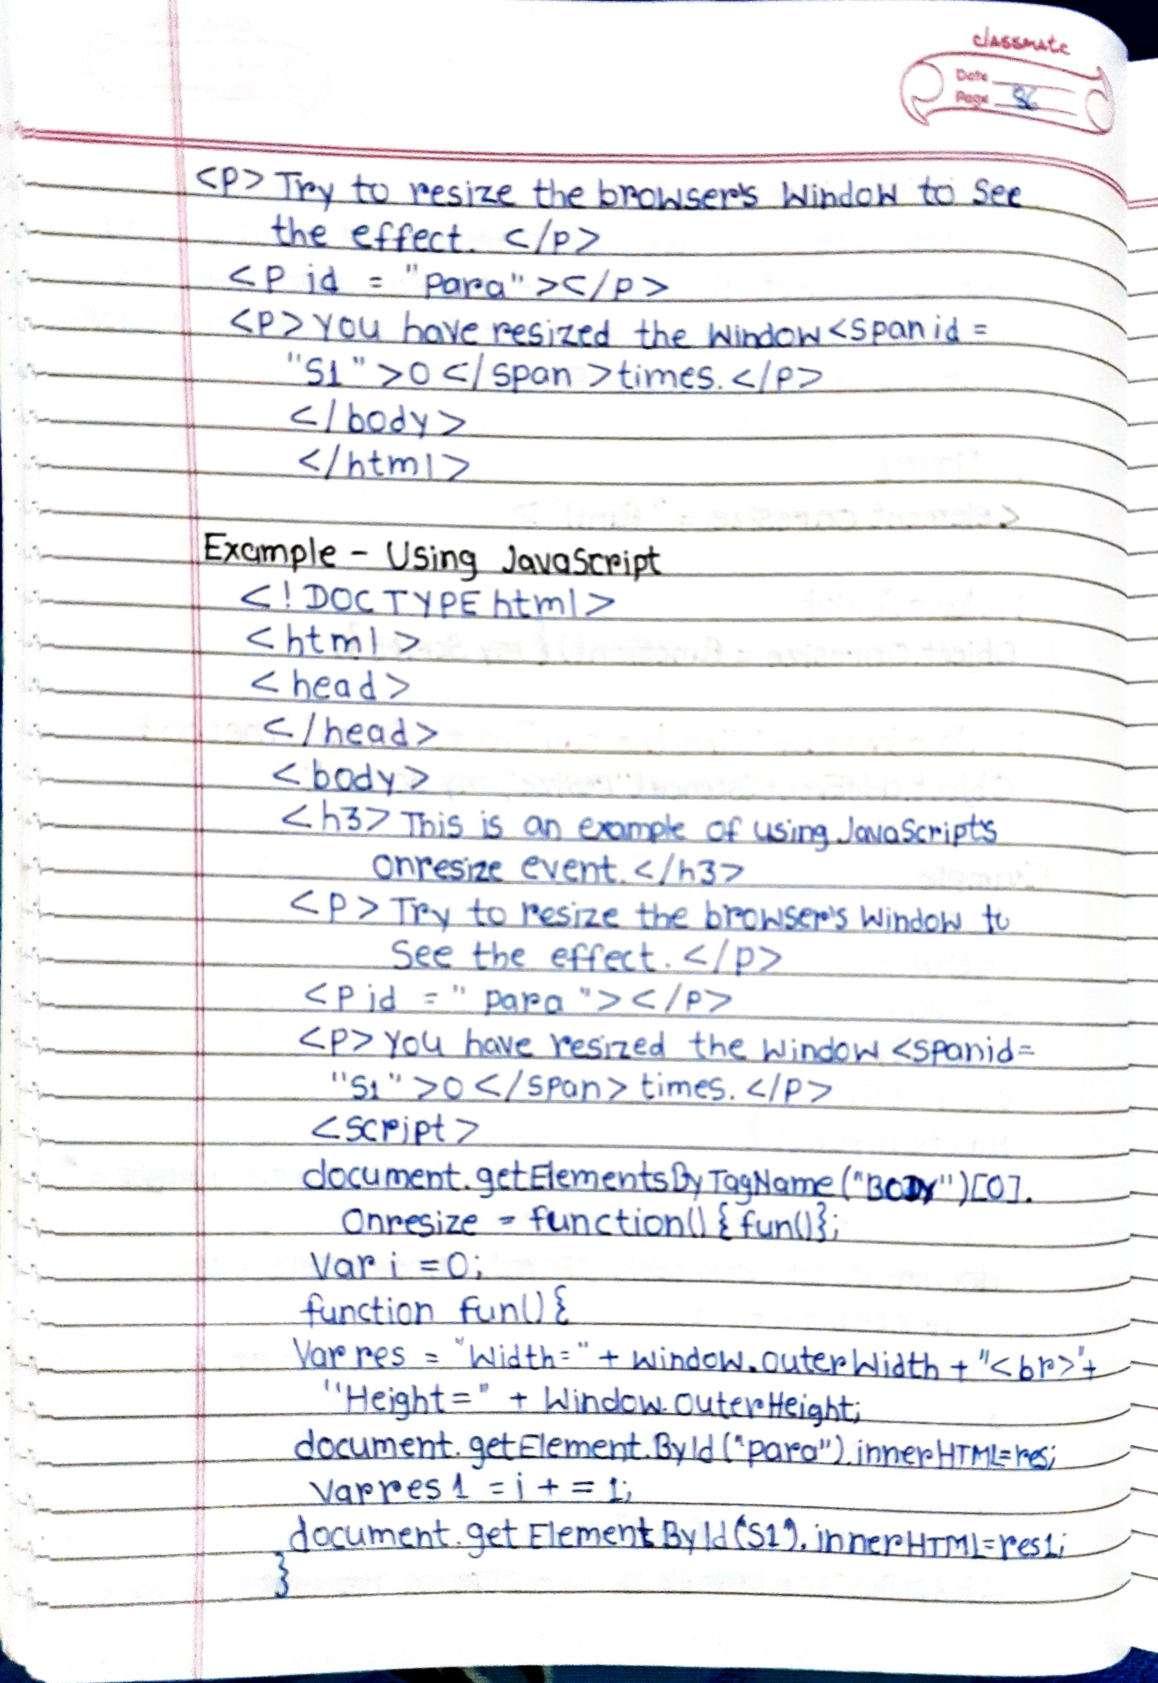 classmate
Date
Page 86
<p> Try to resize the browser's window to see
the effect. </p>
<p id = "para"></p>
<p> you have resized the window <span id =
"S1" >0 </ span >times. </p>
</ body >
</html>
Example - Using JavaScript
<! DOCTYPE html>
<html>
<head>
</head>
<body>
<h3> This is an example of using JavaScript's
onresize event. </h3>
<p> Try to resize the browser's window to
See the effect. </p>
<p id = " para "></p>
<p> you have resized the window <spanid=
"S1" >0 </span> times. </p>
<script>
document.getElementsByTagName("BODY")[0].
Onresize = function() { fun()};
Var i = 0;
function fun() {
Var res = "Width=" + window.outerWidth + "<br>"+
"Height=" + Window.outerHeight;
document.getElement.ById("para").innerHTML=res;
Var res 1 = i + = 1;
document.getElementById("S1").innerHTML=res1;
}